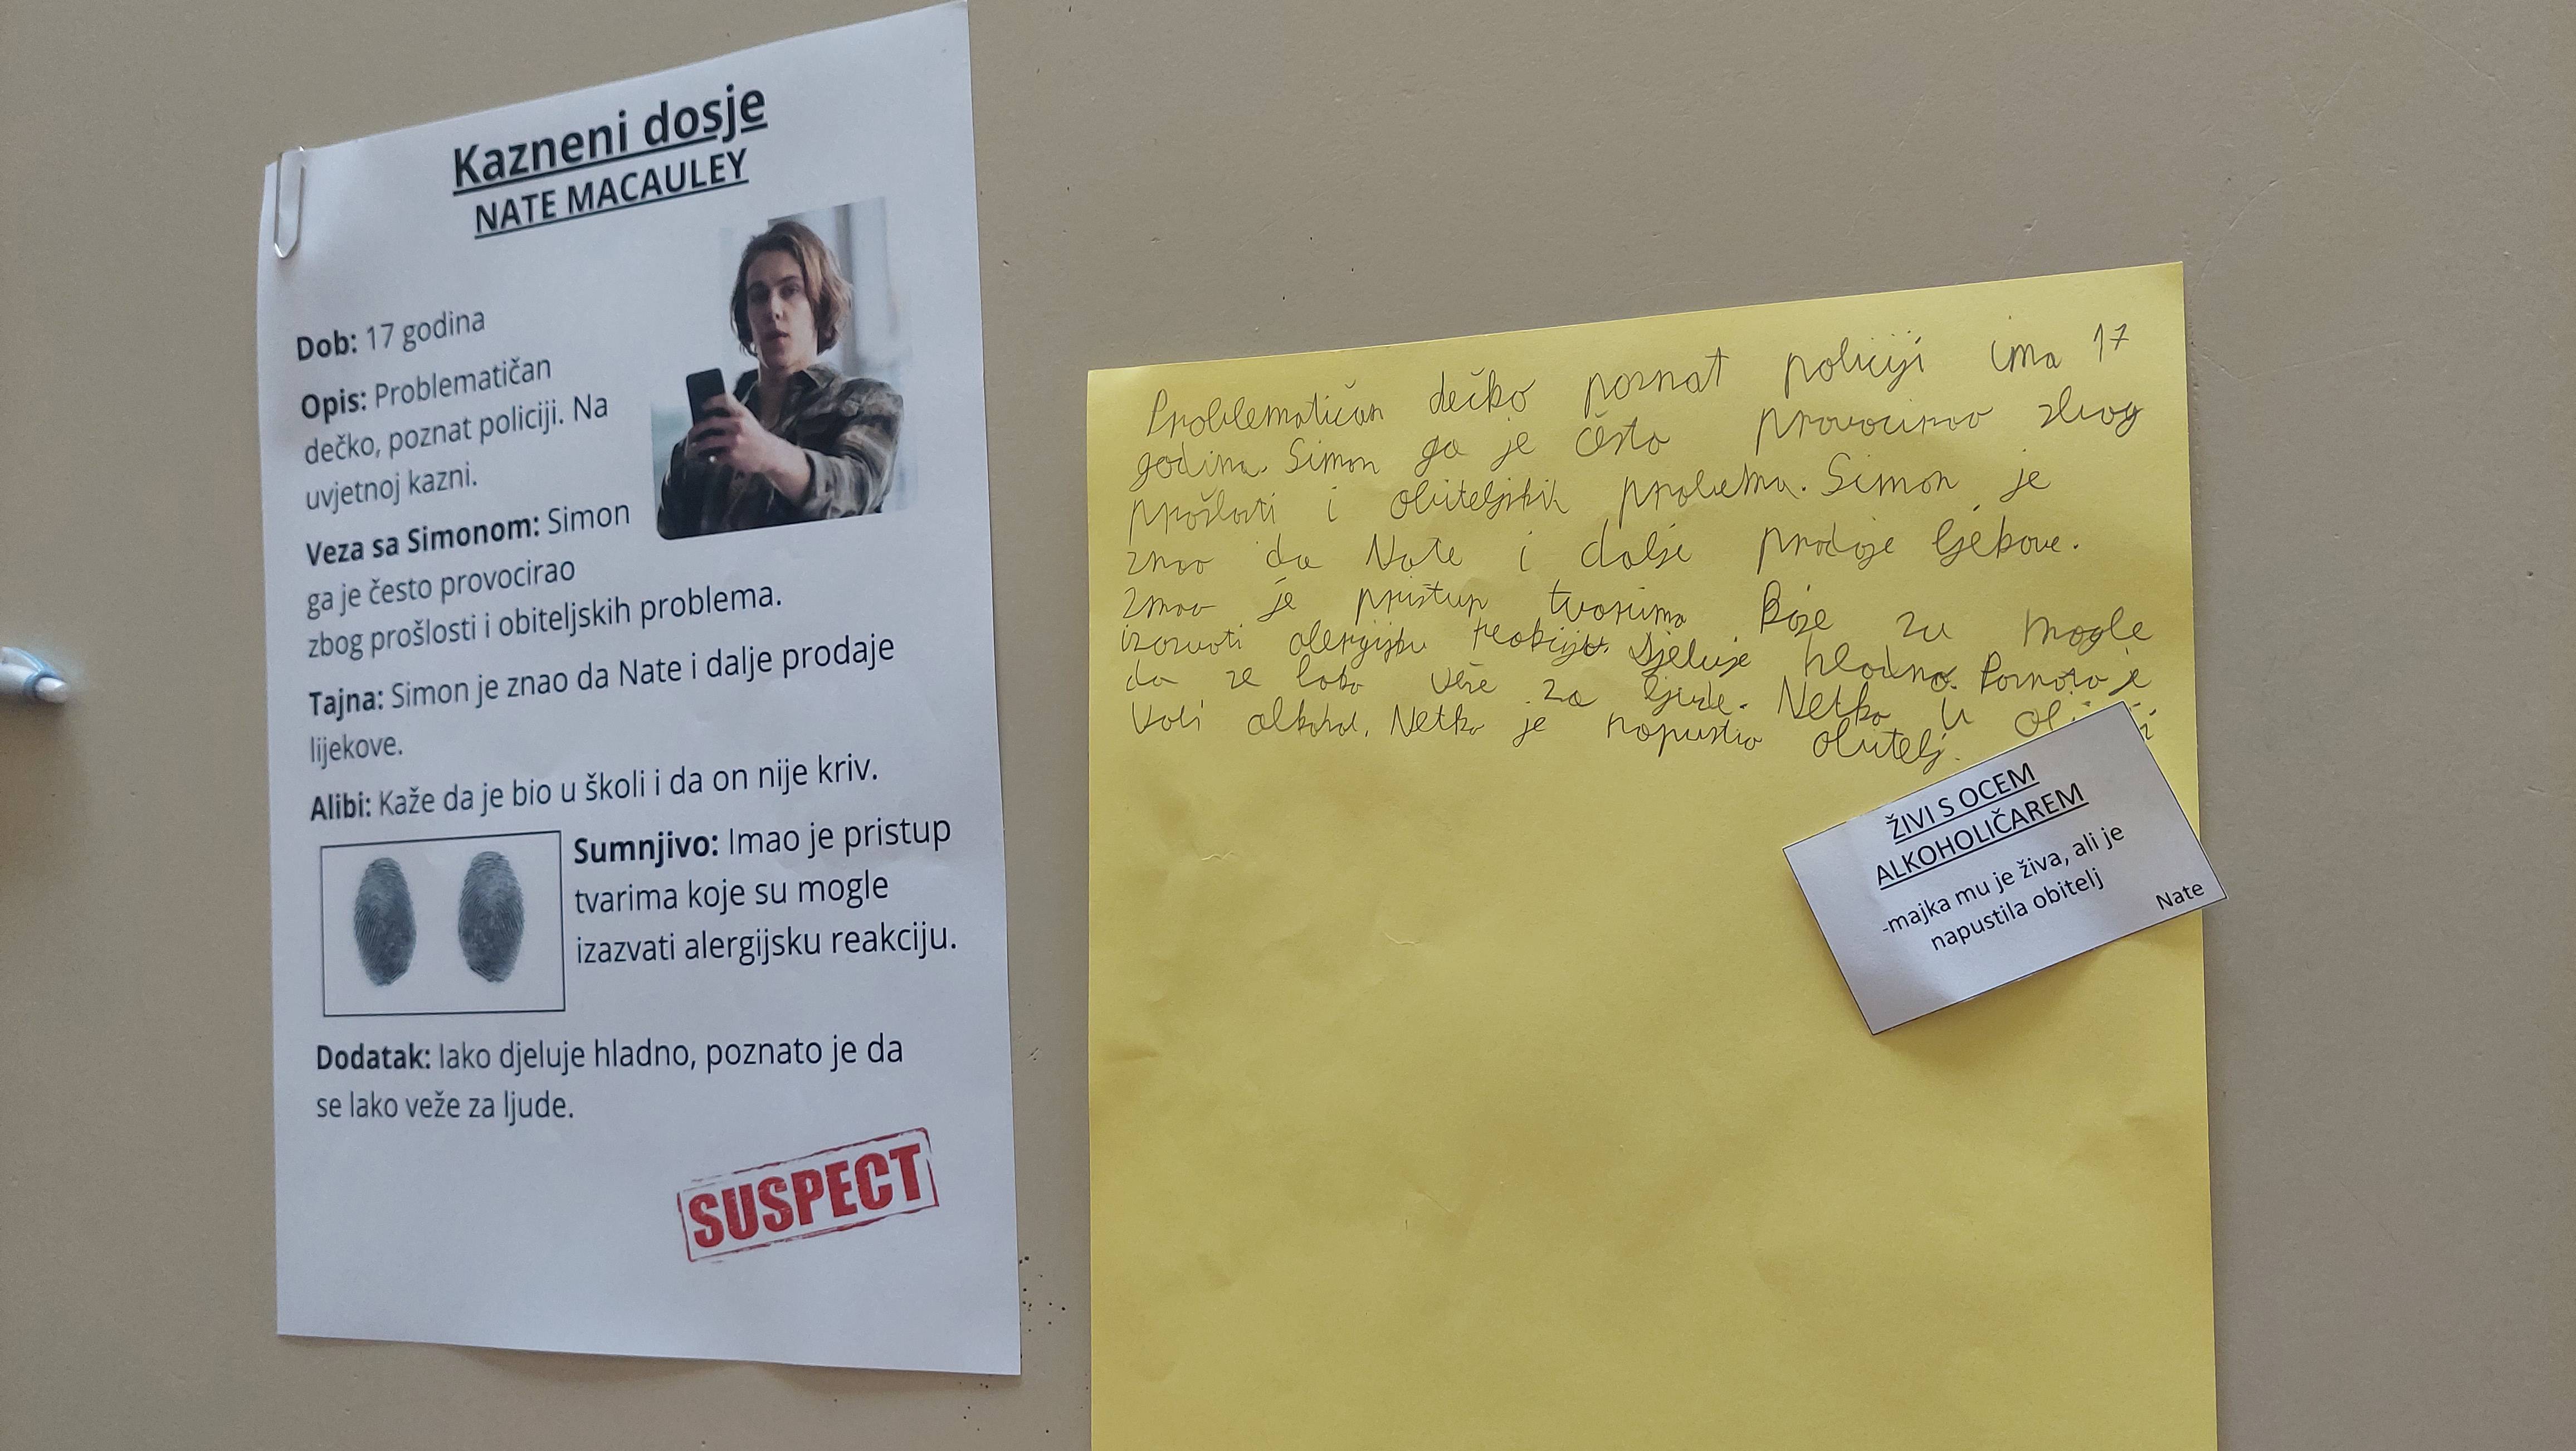 Kazneni dosje
NATE MACAULEY
Dob: 17 godina
Opis: Problematičan
dečko, poznat policiji. Na
uvjetnoj kazni.
Veza sa Simonom: Simon
ga je često provocirao
zbog prošlosti i obiteljskih problema.
Tajna: Simon je znao da Nate i dalje prodaje
lijekove.
Alibi: Kaže da je bio u školi i da on nije kriv.
Sumnjivo: Imao je pristup
tvarima koje su mogle
izazvati alergijsku reakciju.
Dodatak: Iako djeluje hladno, poznato je da
se lako veže za ljude.
SUSPECT
Problematičan dečko poznat policiji ima 17
godina. Simon ga je često provocirao zbog
prošlosti i obiteljskih problema. Simon je
znao da Nate i dalje prodaje ljekove.
Imao je pristup tvarima koje su mogle
izazvati alergijsku reakciju. Djeluje hladno. Poznato je
da se lako veže za ljude. Netko u
voli alkohol. Netko je napustio obitelj.
ŽIVI S OCEM
ALKOHOLIČAREM
-majka mu je živa, ali je
napustila obitelj
Nate